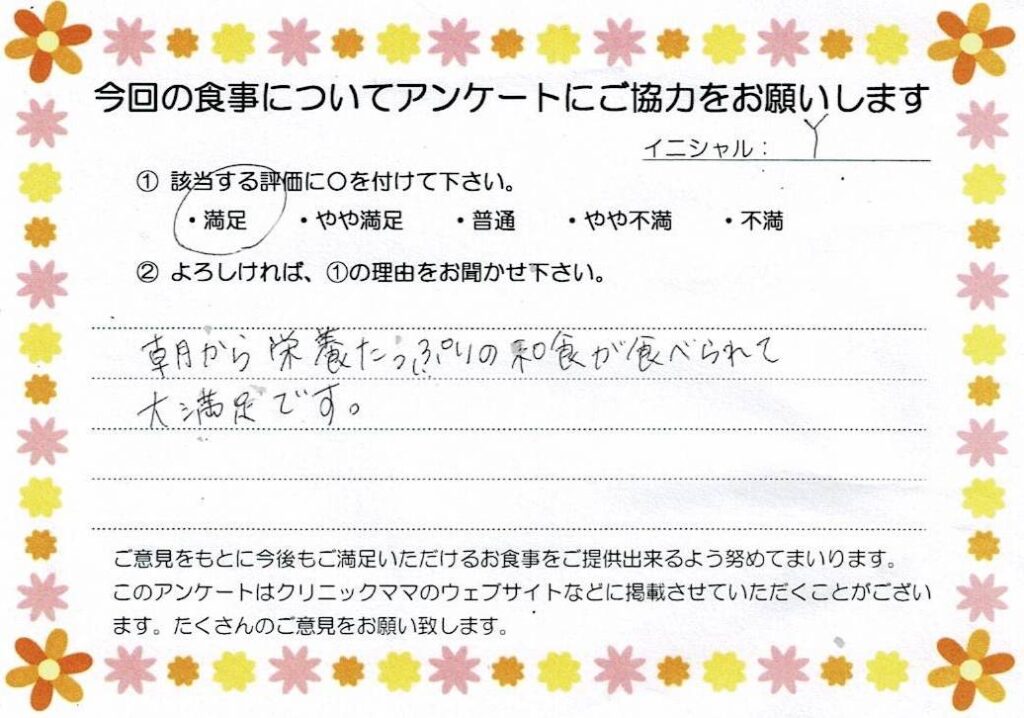 今回の食事についてアンケートにご協力をお願いします
イニシャル： Y
① 該当する評価に〇を付けて下さい。
・満足 ・やや満足 ・普通 ・やや不満 ・不満
② よろしければ、①の理由をお聞かせ下さい。
朝から栄養たっぷりの和食が食べられて
大満足です。
ご意見をもとに今後もご満足いただけるお食事をご提供出来るよう努めてまいります。
このアンケートはクリニックママのウェブサイトなどに掲載させていただくことがござい
ます。たくさんのご意見をお願い致します。